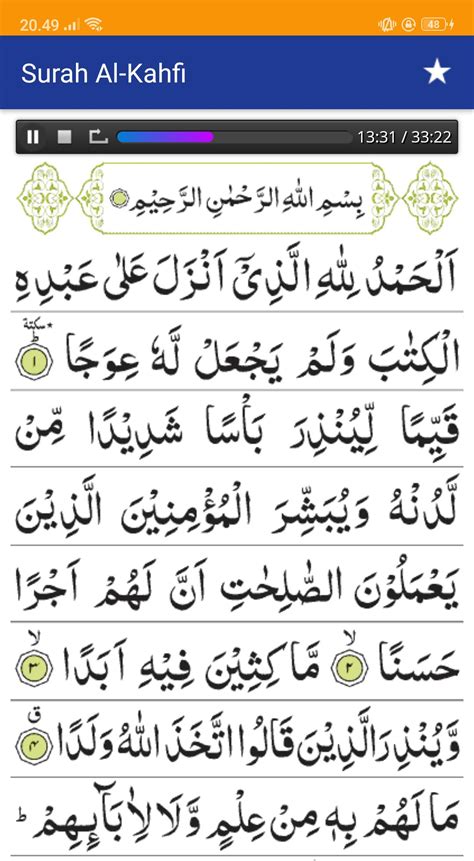 20.49 48
Surah Al-Kahfi
13:31 / 33:22
بِسْمِ اللّٰهِ الرَّحْمٰنِ الرَّحِيْمِ
اَلْحَمْدُ لِلّٰهِ الَّذِيْٓ اَنْزَلَ عَلٰى عَبْدِهِ
الْكِتٰبَ وَلَمْ يَجْعَلْ لَّهٗ عِوَجًا ؕ ١ سكتة
قَيِّمًا لِّيُنْذِرَ بَاْسًا شَدِيْدًا مِّنْ
لَّدُنْهُ وَيُبَشِّرَ الْمُؤْمِنِيْنَ الَّذِيْنَ
يَعْمَلُوْنَ الصّٰلِحٰتِ اَنَّ لَهُمْ اَجْرًا
حَسَنًا ۙ ٢ مَّاكِثِيْنَ فِيْهِ اَبَدًا ۙ ٣
وَّيُنْذِرَ الَّذِيْنَ قَالُوا اتَّخَذَ اللّٰهُ وَلَدًا ق ٤
مَا لَهُمْ بِهٖ مِنْ عِلْمٍ وَّلَا لِاٰبَآىِٕهِمْ ؕ